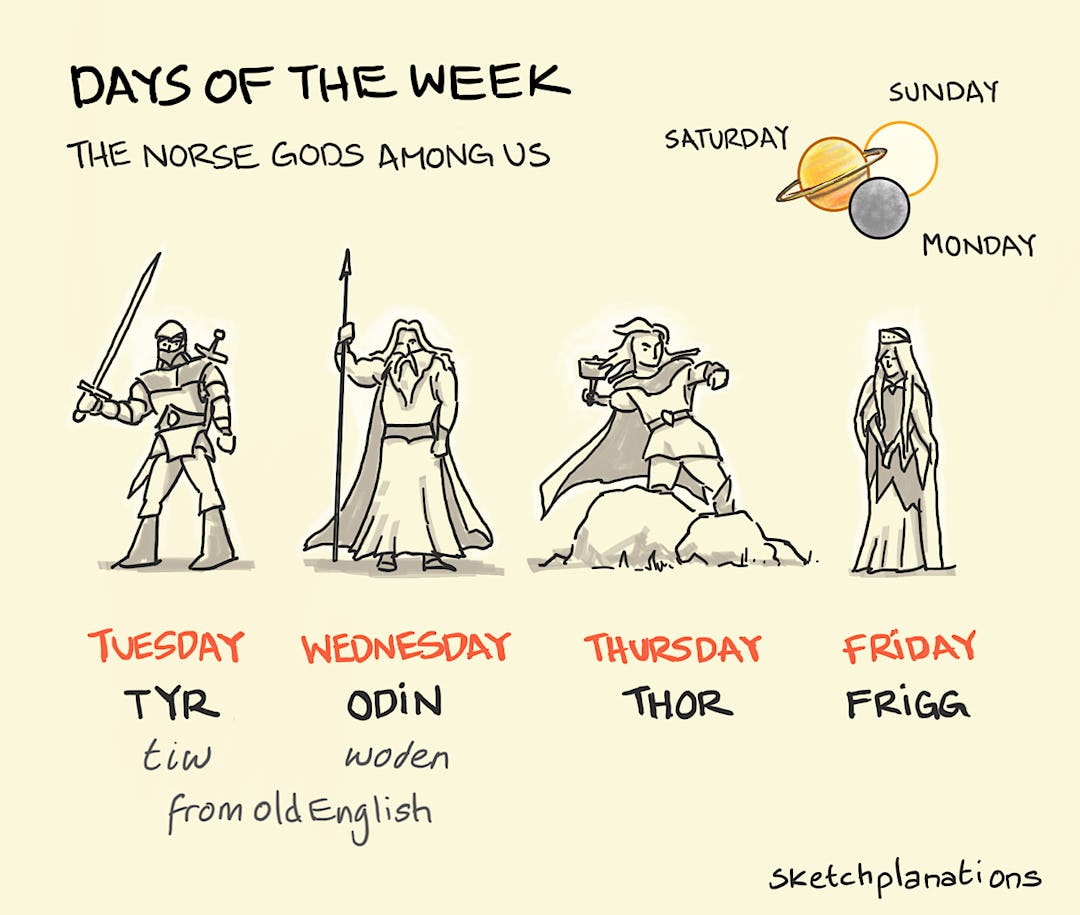 DAYS OF THE WEEK
THE NORSE GODS AMONG US
SUNDAY
SATURDAY
MONDAY
TUESDAY WEDNESDAY THURSDAY FRiDAY
TYR ODiN THOR FRiGG
tiw woden
from old English
sketchplanations